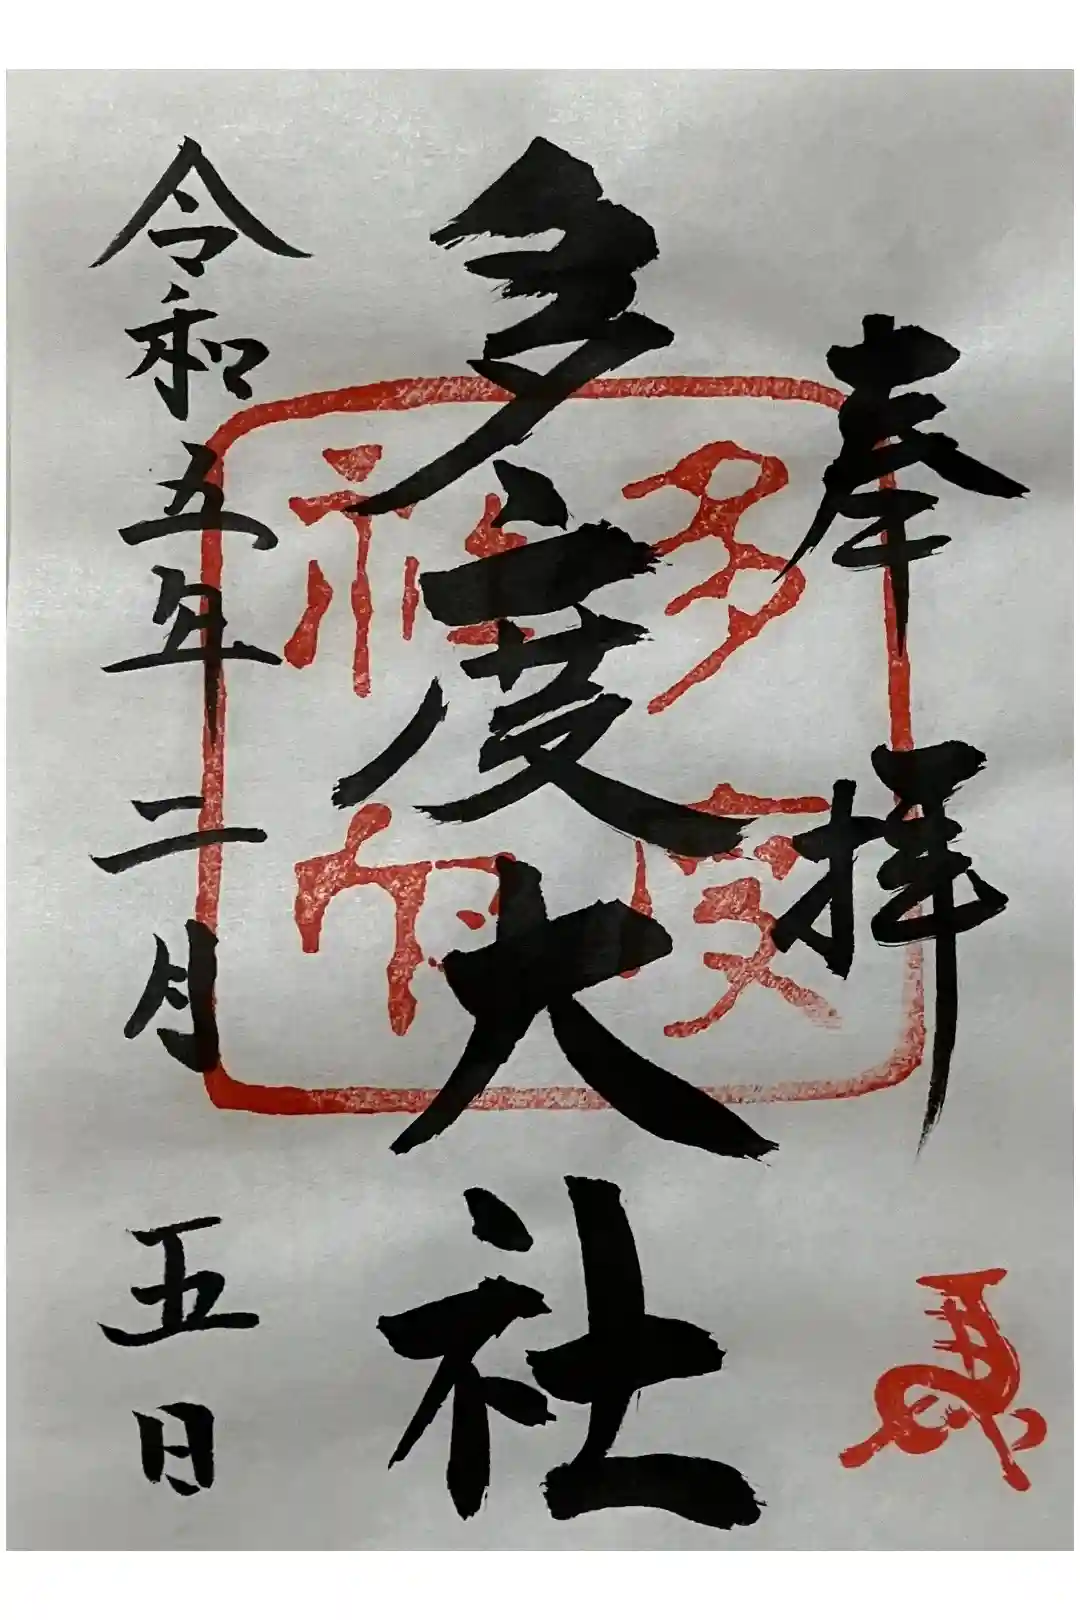 奉拝
多度大社
令和五年二月五日
多度
神印